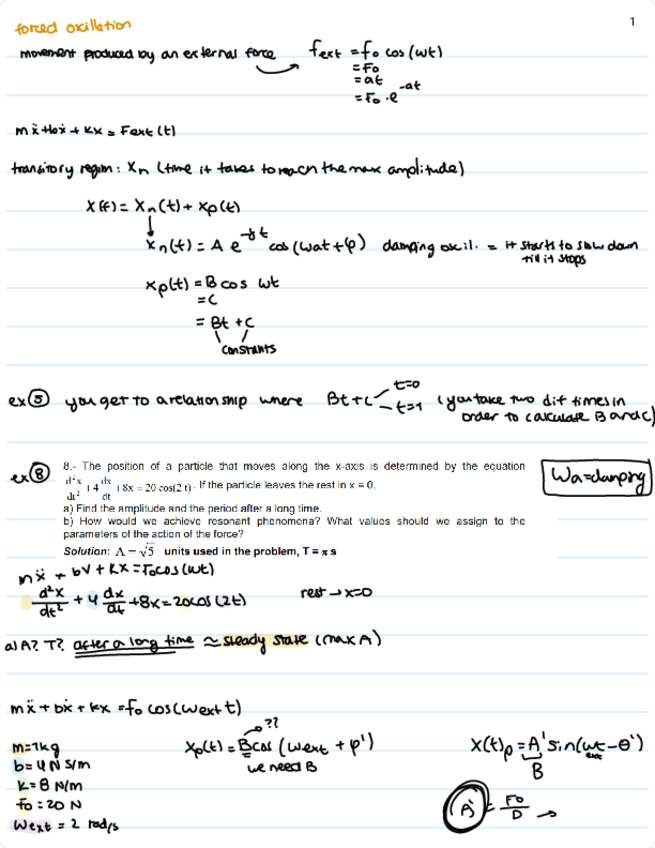 forced oscillation
1
movement produced by an external force fext = fo cos(wt)
= Fo
= at
= Fo · e^-at
mẍ + bẋ + kx = Fext(t)
transitory regim: Xn (time it takes to reach the max amplitude)
X(t) = Xn(t) + Xp(t)
Xn(t) = A e^-γt cos(wat + φ) damping oscil. = it starts to slow down
till it stops
Xp(t) = B cos wt
= C
= Bt + C
constants
ex ⑤ you get to a relationship where Bt + C t=0 t=1 (you take two dif times in
order to calculate B and C)
ex ⑧ 8.- The position of a particle that moves along the x-axis is determined by the equation
d²x/dt² + 4 dx/dt + 8x = 20 cos(2 t). If the particle leaves the rest in x = 0,
Wa=damping
a) Find the amplitude and the period after a long time.
b) How would we achieve resonant phenomena? What values should we assign to the
parameters of the action of the force?
Solution: A = √5 units used in the problem, T = π s
mẍ + bv + kx = Focos(wt)
d²x/dt² + 4 dx/dt + 8x = 20cos(2t) rest → x=0
a) A? T? after a long time ≈ steady state (max A)
mẍ + bẋ + kx = fo cos(wext t)
??
m=1kg Xp(t) = Bcos (wext + φ') X(t)p = A' sin(wt - θ')
ext
b=4 N s/m we need B B
k=8 N/m
fo=20 N A' = Fo/D →
Wext = 2 rad/s